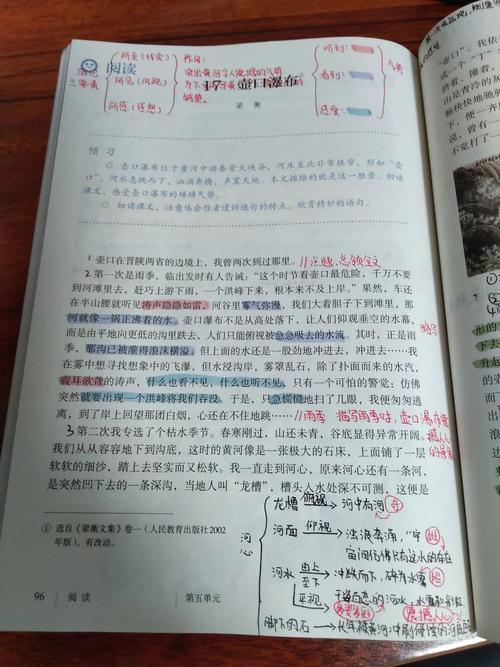 游记三要素
所至（线索）
所见（风貌）
所感（感想）
作用：
突出黄河令人震撼的气势
为下
听到：
看到：
感受：
气势
阅读
17 壶口瀑布①
梁衡
预习
◎ 壶口瀑布位于黄河中游秦晋大峡谷，河床至此非常狭窄，形如“壶
口”，河水急跌而下，汹涌奔腾，声震天地。本文描绘的就是这一胜景。初读
课文，感受壶口瀑布的磅礴气势。
◎ 细读课文，注意体会作者遣词造句的特点，欣赏精妙的语句。
1 壶口在晋陕两省的边境上，我曾两次到过那里。//点题，总领全文
2 第一次是雨季，临出发时有人告诫：“这个时节看壶口最危险，千万不要
到河滩里去，赶巧上游下雨，一个洪峰下来，根本来不及上岸。”果然，车还
在半山腰就听见涛声隐隐如雷，河谷里雾气弥漫，我们大着胆子下到滩里，那
河就像一锅正沸着的水。壶口瀑布不是从高处落下，让人们仰观垂空的水幕，
而是由平地向更低的沟里跌去，人们只能俯视被急急吸去的水流。其时，正是雨
季，那沟已被灌得浪沫横溢，但上面的水还是一股劲地冲进去，冲进去……我
在雾中想寻找想象中的飞瀑，但水浸沟岸，雾罩乱石，除了扑面而来的水汽，
震耳欲聋的涛声，什么也看不见，什么也听不见，只有一个可怕的警觉：仿佛
突然就要出现一个洪峰将我们吞没。于是，只急慌慌地扫了几眼，我便匆匆逃
离，到了岸上回望那团白烟，心还在不住地跳……//雨季 描写雨季时，壶口瀑布
震撼人心
的景象
略写
3 第二次我专选了个枯水季节。春寒刚过，山还未青，谷底显得异常开阔。
我们从从容容地下到沟底，这时的黄河像是一张极大的石床，上面铺了一层
软软的细沙，踏上去坚实而又松软。我一直走到河心，原来河心还有一条河，
是突然凹下去的一条深沟，当地人叫“龙槽”，槽头入水处深不可测，这便是
① 选自《梁衡文集》卷一（人民教育出版社2002
年版）。有改动。
河心
龙槽 俯视 河中有河 奇
河面 仰视 浊浪奔涌，
宙间仿佛只有这水的存在 雄
河水 由上至下 冲跌而下，碎为水雾
平视
震撼人心
脚下的石
96 阅读 第五单元